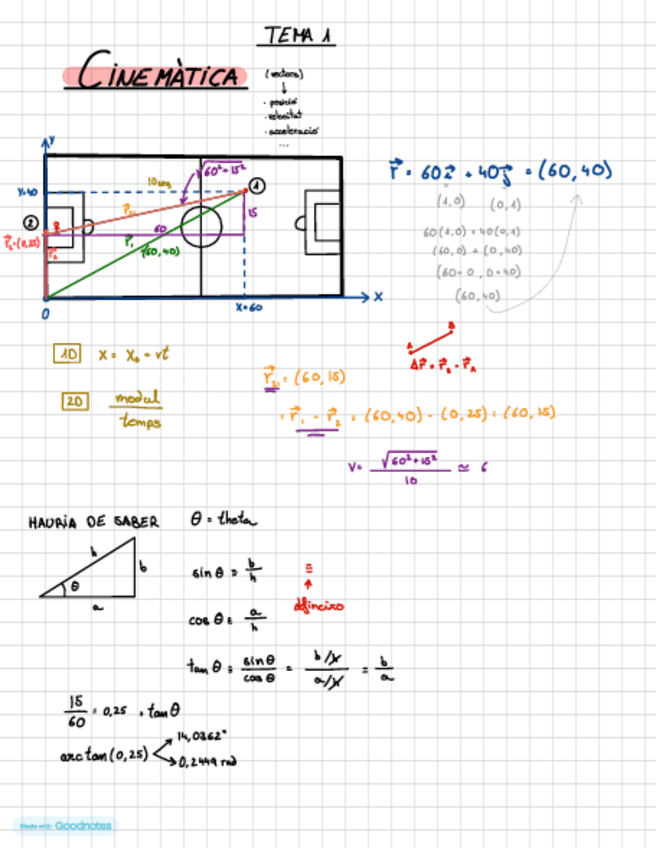 TEMA 1
CINEMÀTICA
(vectors)
↓
· posició
· velocitat
· acceleració
...
y
10 seg
√60²+15²
①
y=40
②
r⃗₂₁
15
60
r⃗₂=(0,25)
r⃗₂
r⃗₁
(60,40)
0
x=60
x
r⃗ = 60i⃗ + 40j⃗ = (60,40)
(1,0) (0,1)
60(1,0) + 40(0,1)
(60,0) + (0,40)
(60+0, 0+40)
(60,40)
1D x = x₀ + vt
B
A
Δr⃗ = r⃗_B - r⃗_A
2D modul / temps
r⃗₂₁ = (60,15)
= r⃗₁ - r⃗₂ = (60,40) - (0,25) = (60,15)
v = √60²+15² / 10 ≃ 6
HAURIA DE SABER θ = theta
h
b
θ
a
sin θ = b/h
≡
↑
defineixo
cos θ = a/h
tan θ = sin θ / cos θ = b/h / a/h = b/a
15/60 = 0,25 = tan θ
arctan(0,25)
14,0362°
0,2449 rad
Made with Goodnotes